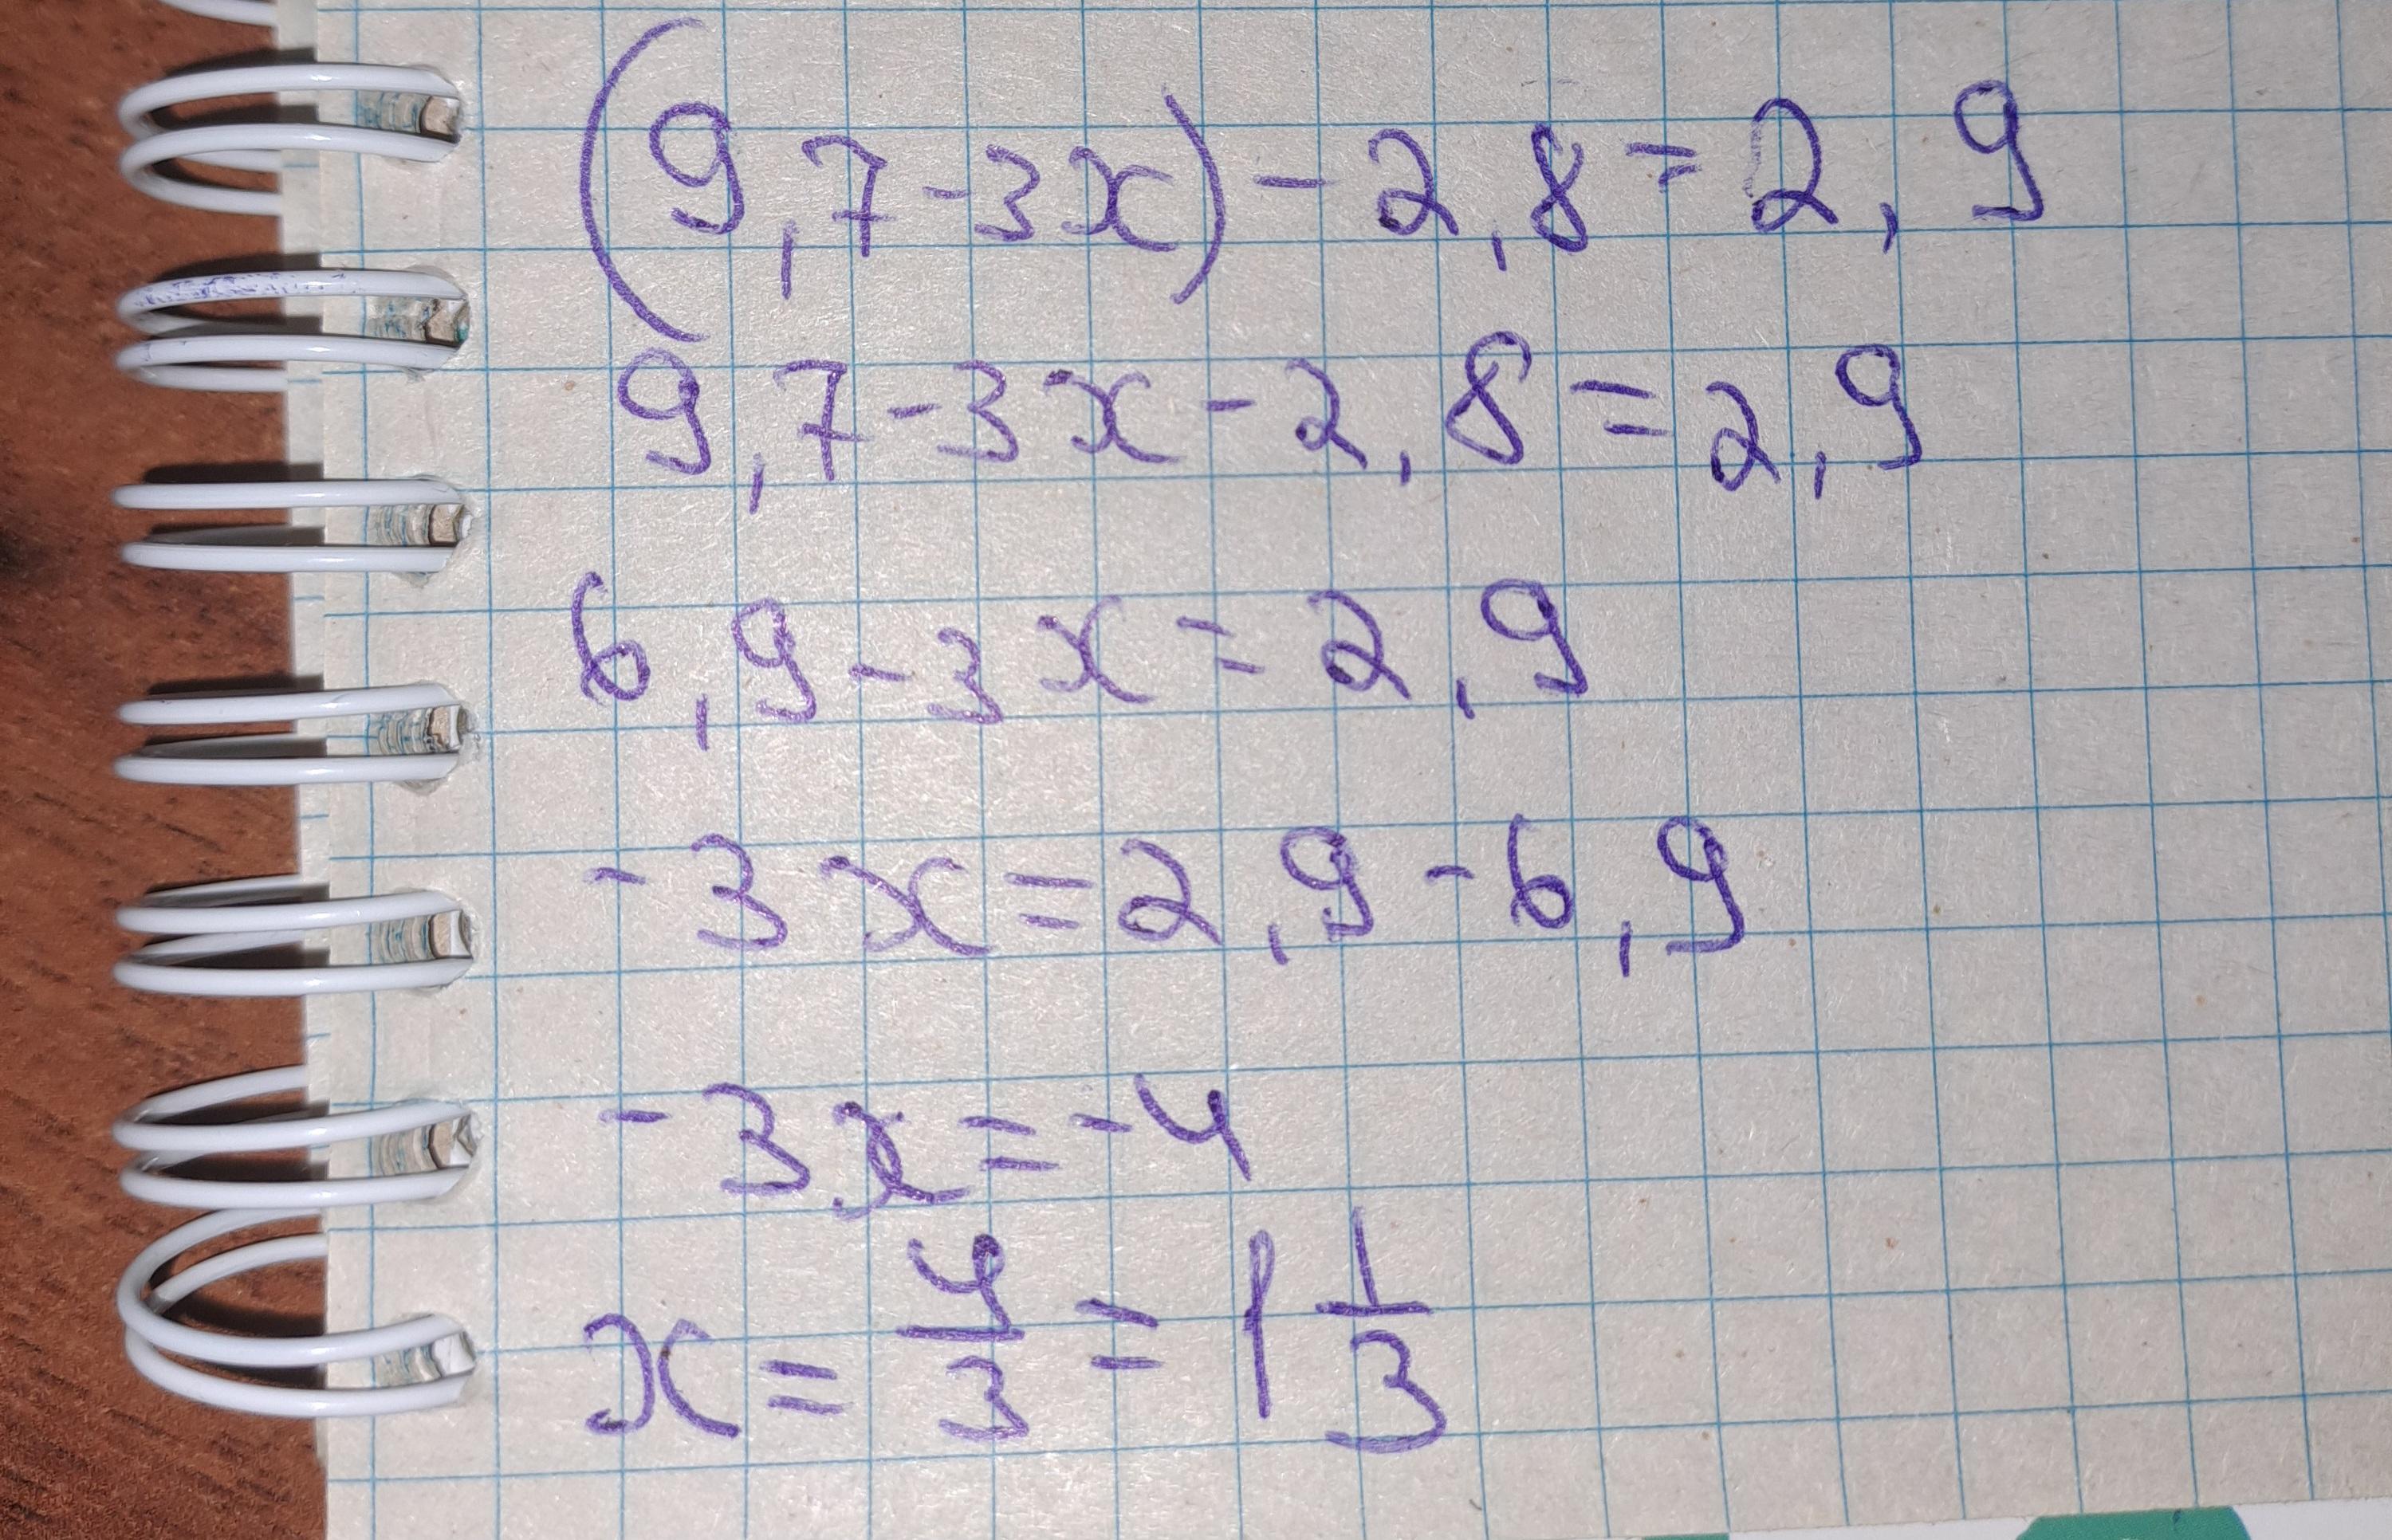 (9,7-3x)-2,8=2,9
9,7-3x-2,8=2,9
6,9-3x=2,9
-3x=2,9-6,9
-3x=-4
x=4/3=1 1/3